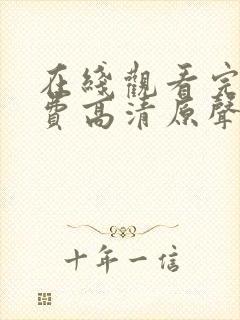 在綫觀看完
費高清原聲
十年一信